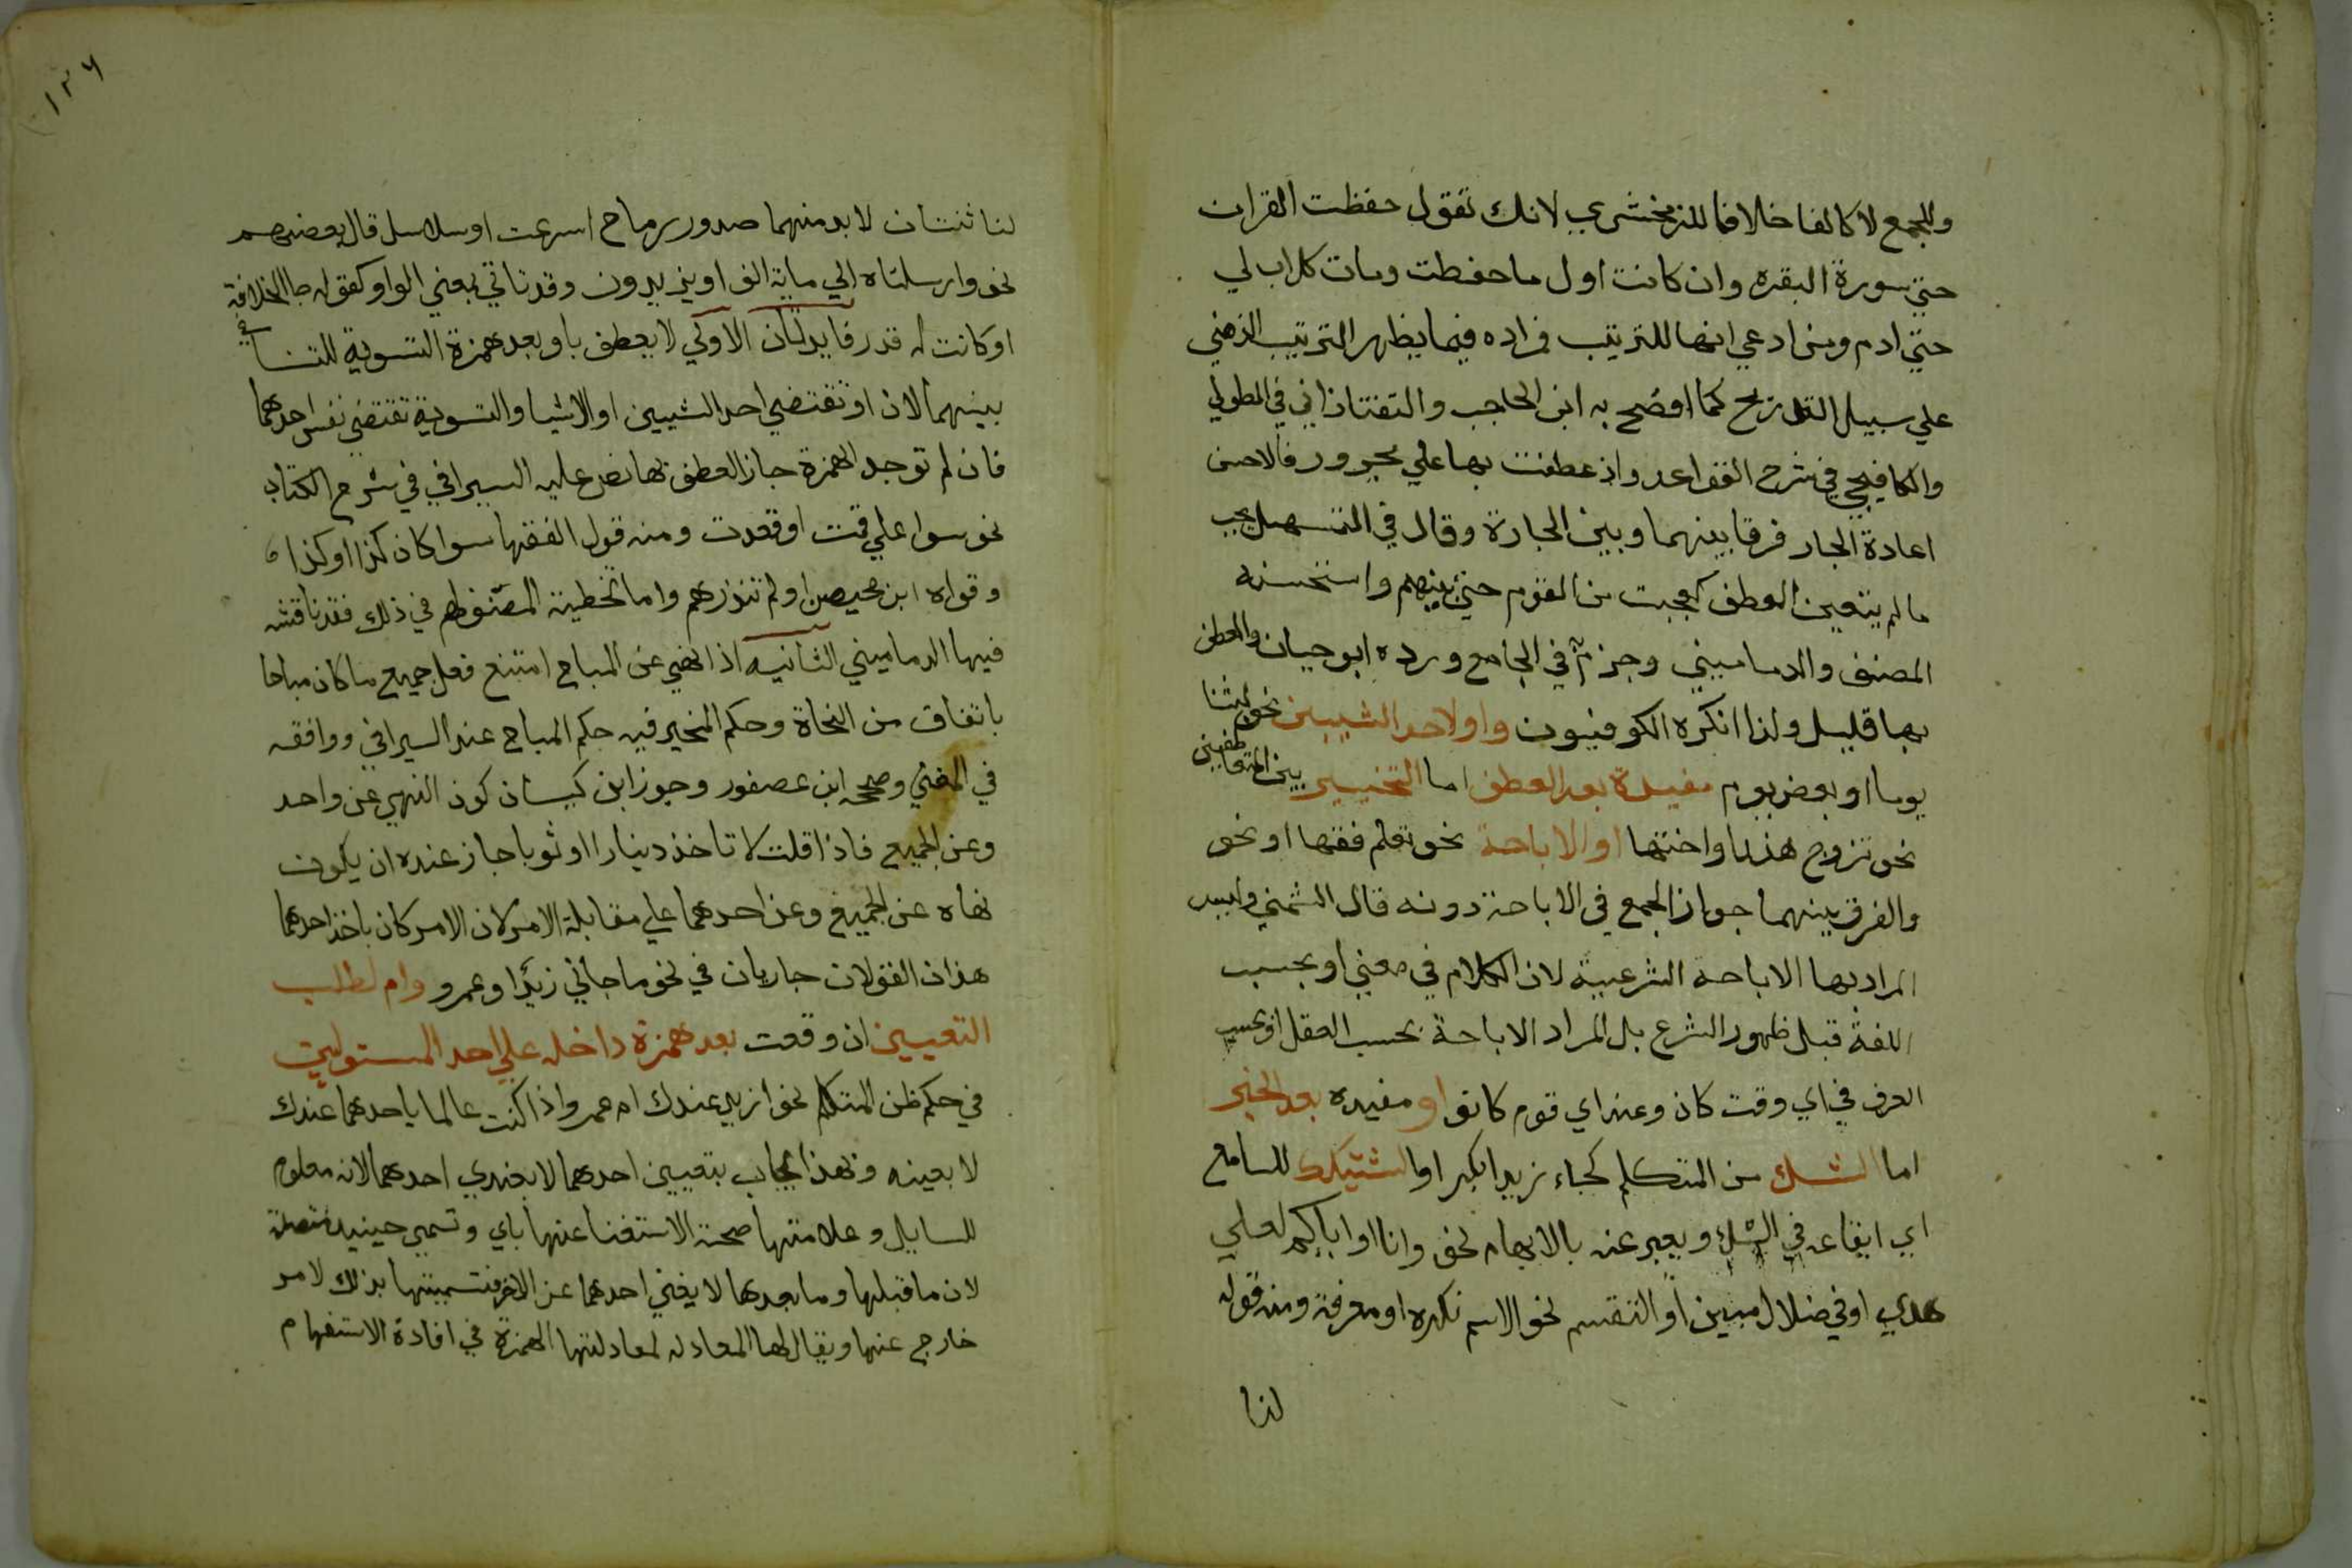 وللجمع لا كالفا خلافا للزمخشري لانك تقول حفظت القران
حتي سورة البقره وان كانت اول ما حفظت ومات كل اب لي
حتي ادم ومن ادعي انها للترتيب فمراده فيما يظهر الترتيب الذهني
علي سبيل التدريج كما افصح به ابن الحاجب والتفتازاني في المطول
والكافيجي في شرح القواعد واذ عطفت بها علي مجرور فالاحسن
اعادة الجار فرقا بينهما وبين الجارة وقال في التسهيل يجب
ما لم يتعين العطف كعجبت من القوم حتي بنيهم واستحسنه
المصنف والدماميني وجزم في الجامع ورده ابو حيان والعطف
بها قليل ولذا انكره الكوفيون واو لاحد الشيين نحو لبثنا
يوما او بعض يوم مفيدة بعد الطلب اما التخيير بين المتعاطفين
نحو تزوج هندا واختها او الاباحة نحو تعلم فقها او نحو
والفرق بينهما جواز الجمع في الاباحة دونه قال الشمني وليس
المراد بها الاباحة الشرعية لان الكلام في معني او بحسب
اللغة قبل ظهور الشرع بل المراد الاباحة بحسب العقل او بحسب
العرف في اي وقت كان وعند اي قوم كانوا او مفيده بعد الخبر
اما الشك من المتكلم كجاء زيد ا بكر او التشكيك للسامع
اي ايقاعه في الشك ويعبر عنه بالابهام نحو وانا او اياكم لعلي
هدي او في ضلال مبين او التقسيم نحو الاسم نكره او معرفة ومنه قوله
لنا
١٣٦
لنا ثنتان لا بد منهما صدور رماح اسرعت او سلاسل قال بعضهم
نحو وارسلناه الي ماية الف او يزيدون وقد تاتي بمعني الواو كقوله جا الخلافة
او كانت له قدر فايدتان الاولي لا يعطف باو بعد همزة التسوية للتنافي
بينهما لان او تقتضي احد الشيين او الاشيا والتسوية تقتضي نفس احدهما
فان لم توجد الهمزة جاز العطف بها نص عليه السيرافي في شرح الكتاب
نحو سوا علي قمت او قعدت ومنه قول الفقها سوا كان كذا او كذا
وقراه ابن محيصن او لم تنذرهم واما تخطية المصنف لهم في ذلك فقد ناقشه
فيها الدماميني الثانيه اذ انهي عن المباح امتنع فعل جميع ما كان مباحا
باتفاق من النحاة وحكم المخير فيه حكم المباح عند السيرافي ووافقه
في المغني وصححه ابن عصفور وجوز ابن كيسان كون النهي عن واحد
وعن الجميع فاذا قلت لا تاخذ دينارا او ثوبا جاز عنده ان يكون
نهاه عن الجميع وعن احدهما علي مقابلة الامر لان الامر كان باخذ احدهما
هذان القولان جاريان في نحو ما جاني زيدا وعمرو وام لطلب
التعيين ان وقعت بعد همزة داخله علي احد المستويين
في حكم ظن المتكلم نحو ازيد عندك ام عمر واذا كنت عالما باحدهما عندك
لا بعينه ولهذا يجاب بتعيين احدهما لا بعندي احدهما لانه معلوم
للسايل وعلامتها صحة الاستغنا عنها باي وتسمي حينيذ متصلة
لان ما قبلها وما بعدها لا يغني احدهما عن الاخر فتسميتها بذلك لامر
خارج عنها ويقال لها المعادله لمعادلتها الهمزة في افادة الاستفهام